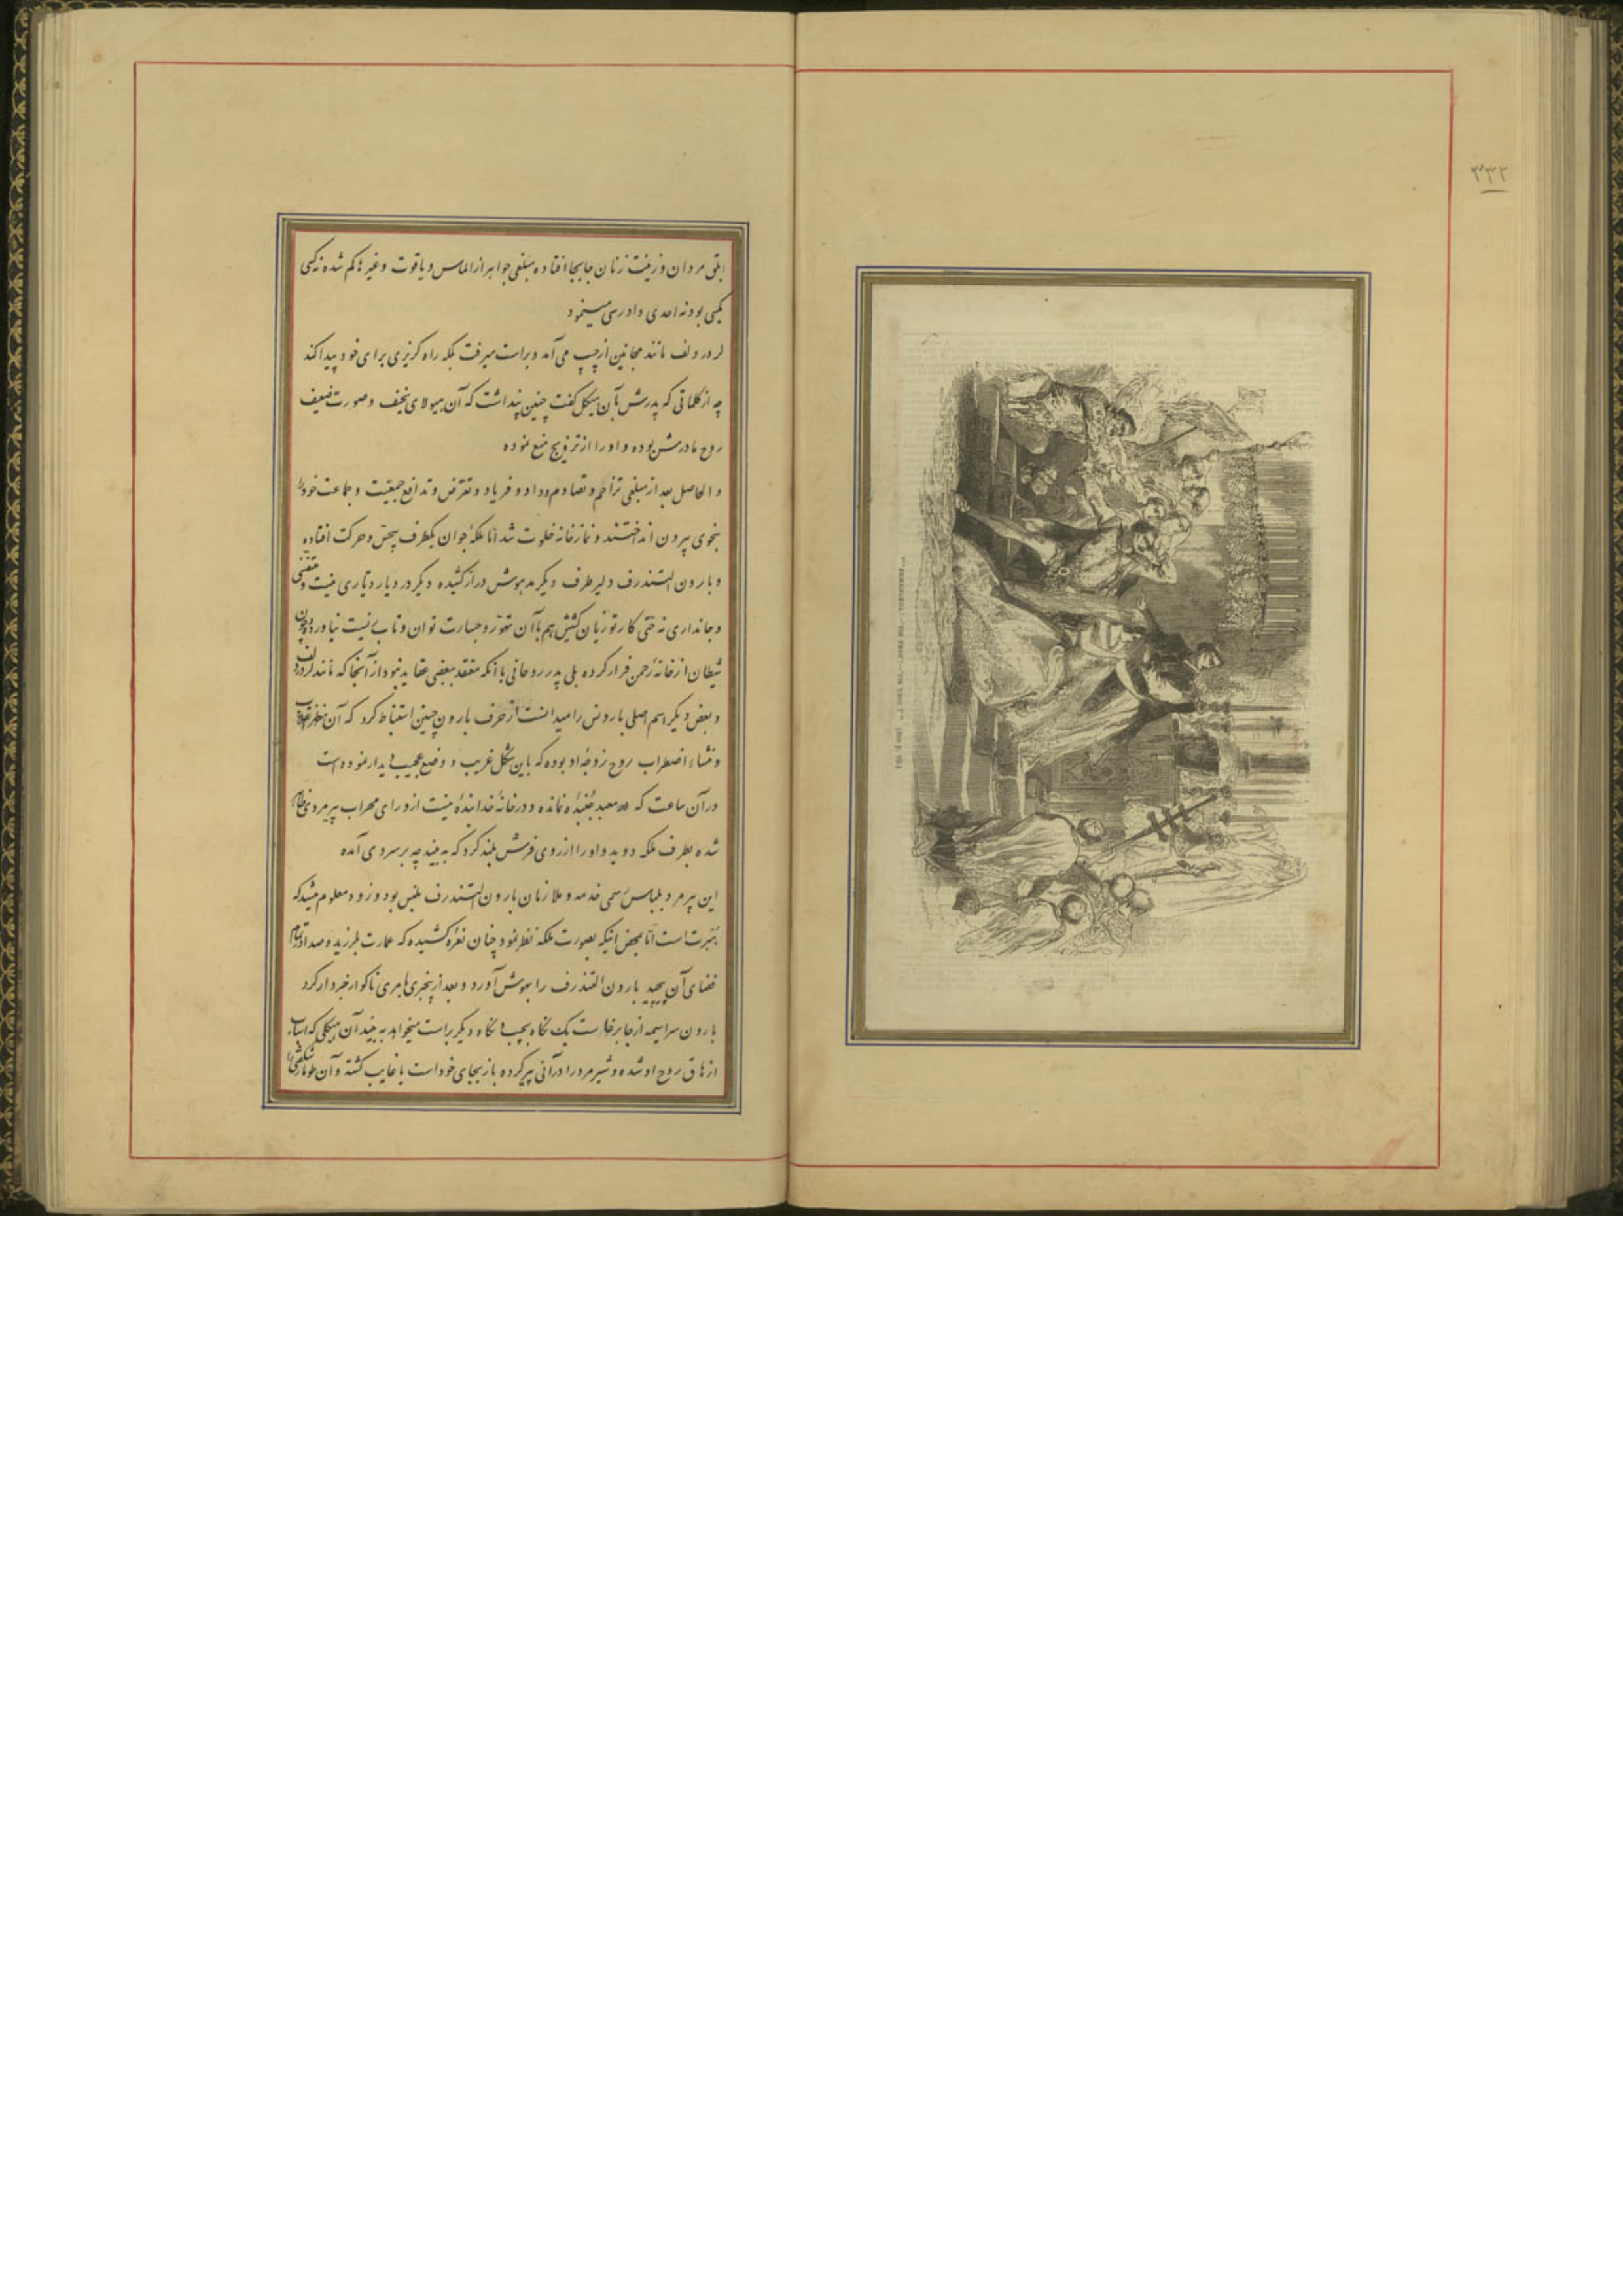 ۳۳۲
ابلقی مردان و زینت زنان جابجا افتاده مبلغی جواهر از الماس و یاقوت و غیرها کم شده نه کسی
بکسی بود نه احدی دادرسی مینمود
لرد ردلف مانند مجانین از چپ می آمد و براست میرفت بلکه راه گریزی برای خود پیدا کند
چه از کلماتی که پدرش بآن هیکل گفت چنین پنداشت که آن هیولای نحیف و صورت ضعیف
روح مادرش بوده و او را از تزویج منع نموده
و الحاصل بعد از مبلغی تزاحم و تصادم و داد و فریاد و تعرض و تدافع جمعیت و جماعت خود را
بنحوی بیرون انداختند و نمازخانه خلوت شد اما ملکهٔ جوان یکطرف بیحس و حرکت افتاده
و بارون التندرف دلیر طرف دیگر مدهوش دراز کشیده دیگر در دیار دیاری نیست و متنفسی
و جانداری نه حتی کارتوزیان کشیش هم با آن تهور و جسارت توان و تاب نیاورده و چون
شیطان از خانهٔ رحمن فرار کرده بلی پدر روحانی با آنکه معتقد ببعضی عقاید نبود از آنجا که مانند لرد ردلف
و بعض دیگر اسم اصلی بارونس را میدانست از حرف بارون چنین استنباط کرد که آن
و منشاء اضطراب روح زوجهٔ او بوده که باین شکل غریب و وضع عجیب دیدار نموده است
در آن ساعت که در معبد جنبنده نمانده و در خانهٔ خدا بندهٔ نیست از ورای محراب پیرمردی ظاهر
شده بطرف ملکه دوید و او را از روی فرش بلند کرد که به بیند چه بر سر وی آمده
این پیرمرد بلباس رسمی خدمه و ملازمان بارون التندرف ملبس بود و زود معلوم میشد که
هبرت است اما بمحض اینکه بصورت ملکه نظر نمود چنان نعره کشیده که عمارت بلرزید و صدا در تمام
فضای آن پیچید بارون التندرف را بهوش آورد و بعد از بیخبری بامری ناگوار خبردار کرد
بارون سراسیمه از جا برخاست یک نگاه بچپ و نگاه دیگر براست میخواهد به بیند آن هیکلی که اسباب
ازهاق روح او شده و شیرمرد را در آنی پیر کرده باز بجای خود است یا غایب گشته و آن طومار